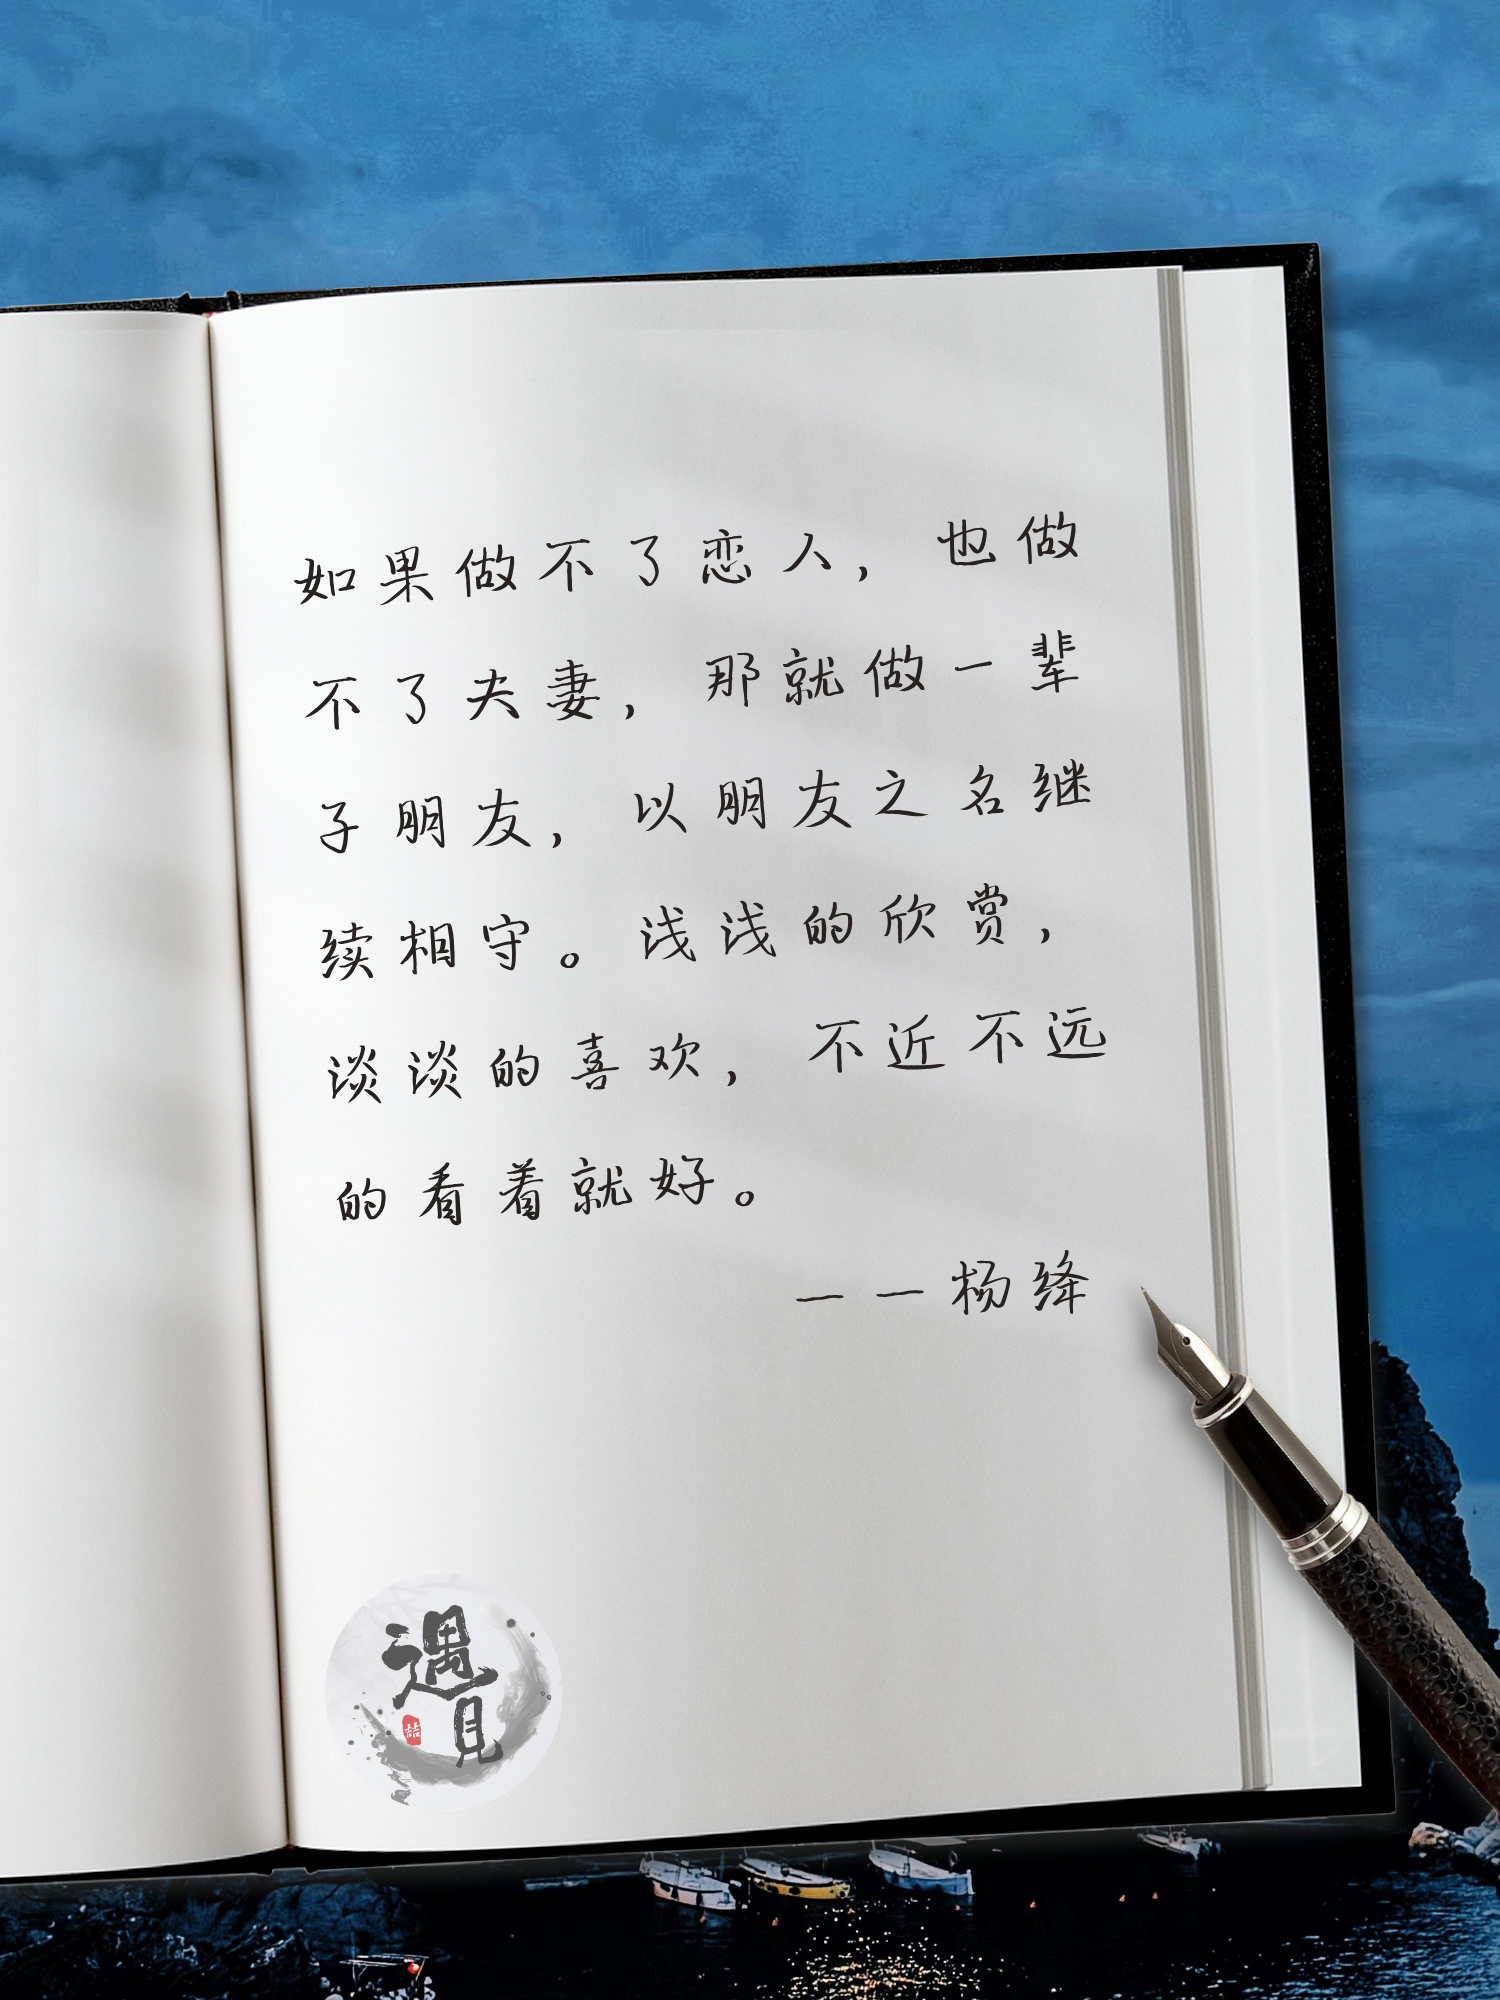 如果做不了恋人，也做
不了夫妻，那就做一辈
子朋友，以朋友之名继
续相守。浅浅的欣赏，
淡淡的喜欢，不近不远
的看着就好。
——杨绛
遇
見
喆